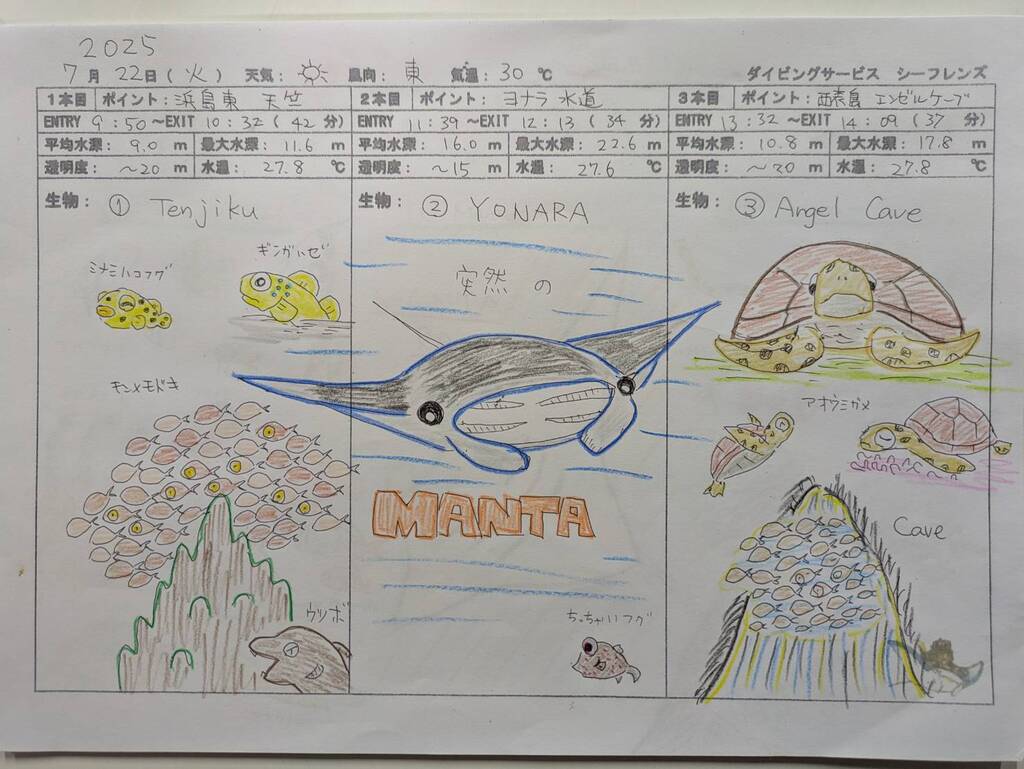 2025
7月 22日(火) 天気: 風向: 東 気温: 30 ℃ ダイビングサービス シーフレンズ
1本目 ポイント: 浜島東 天竺
ENTRY 9:50 ~EXIT 10:32 (42 分)
平均水深: 9.0 m 最大水深: 11.6 m
透明度: ~20 m 水温: 27.8 ℃
生物: ① Tenjiku
ミナミハコフグ
ギンガハゼ
キンメモドキ
ウツボ
2本目 ポイント: ヨナラ水道
ENTRY 11:39 ~EXIT 12:13 (34 分)
平均水深: 16.0 m 最大水深: 22.6 m
透明度: ~15 m 水温: 27.6 ℃
生物: ② YONARA
突然の
MANTA
ちっちゃいフグ
3本目 ポイント: 西表島 エンゼルケーブ
ENTRY 13:32 ~EXIT 14:09 (37 分)
平均水深: 10.8 m 最大水深: 17.8 m
透明度: ~20 m 水温: 27.8 ℃
生物: ③ Angel Cave
アオウミガメ
Cave